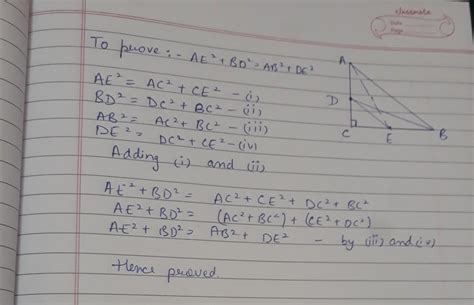 classmate
Date
Page
To prove :- AE² + BD² = AB² + DE²
A
D
C
E
B
AE² = AC² + CE² - (i)
BD² = DC² + BC² - (ii)
AB² = AC² + BC² - (iii)
DE² = DC² + CE² - (iv)
Adding (i) and (ii)
AE² + BD² = AC² + CE² + DC² + BC²
AE² + BD² = (AC² + BC²) + (CE² + DC²)
AE² + BD² = AB² + DE² - by (iii) and (iv)
Hence proved.